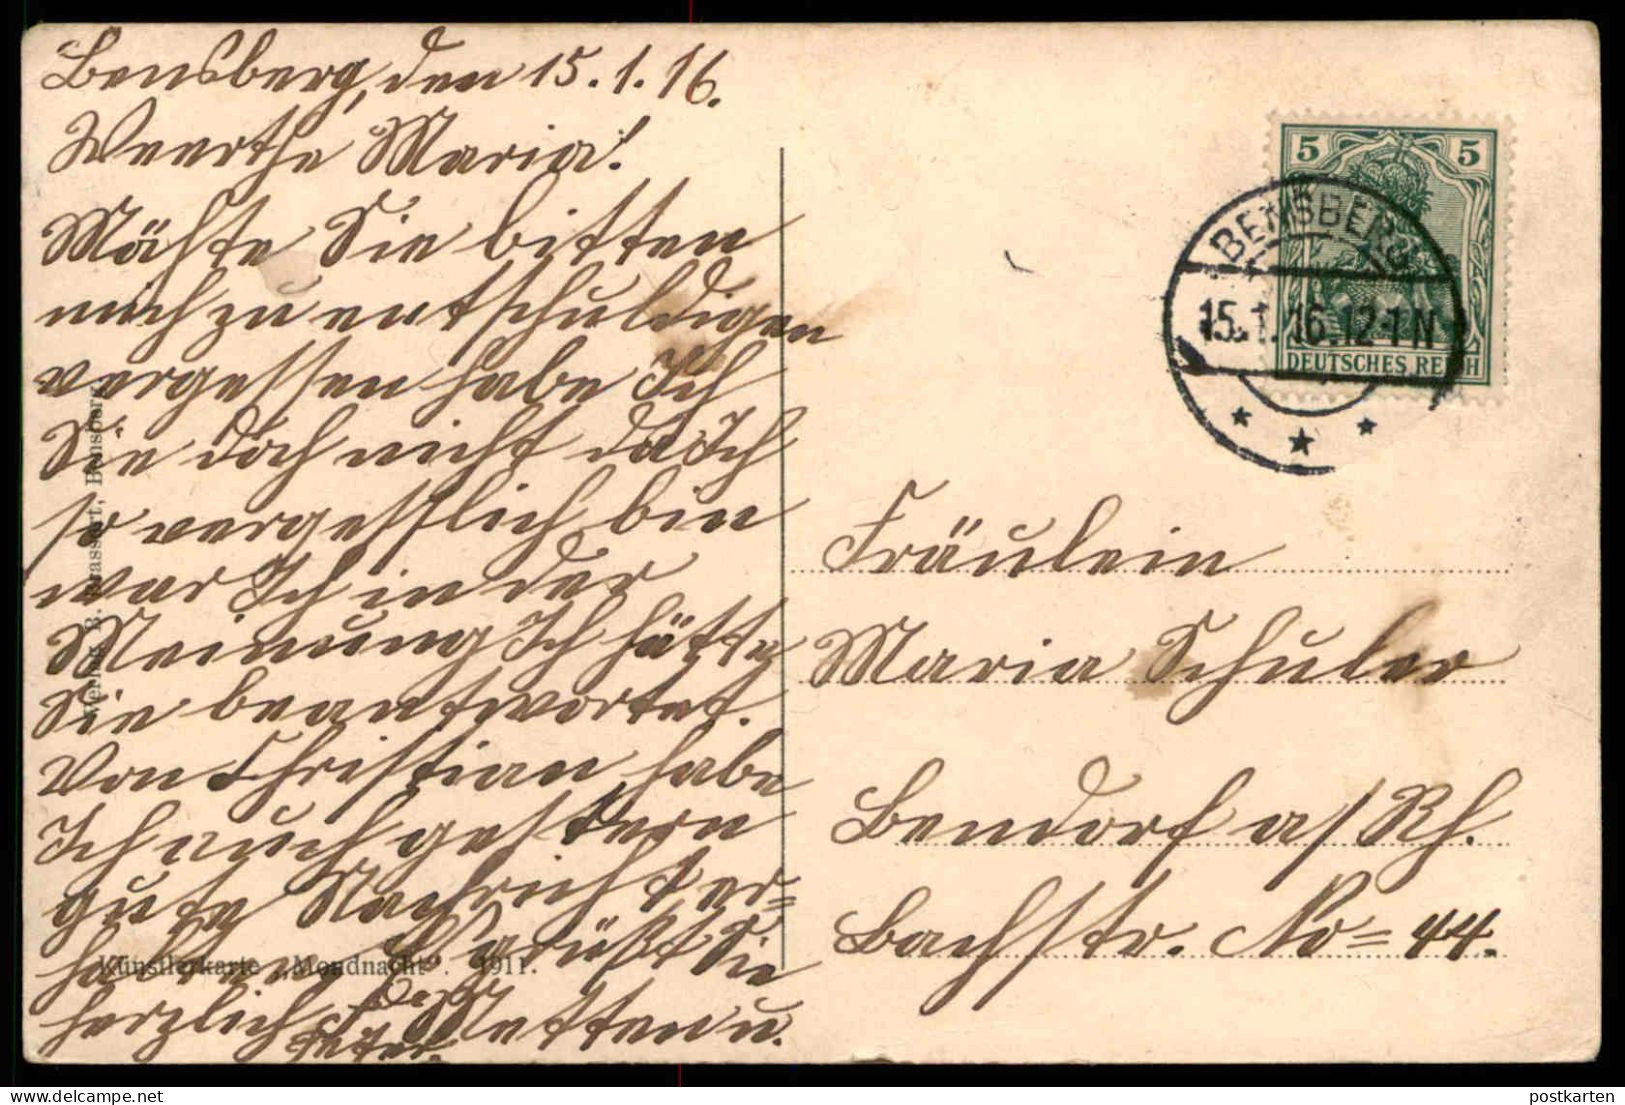 Bensberg, den 15.1.16.
Weerthe Maria!
Mächte Sie bitten
mich zu entschuldigen
vergessen habe Ich
Sie doch nicht da Ich
so vergesslich bin
war Ich in der
Meinung Ich hätte
Sie beantwortet.
Von Christian habe
Ich auch gestern
gute Nachricht er=
halten. Es grüßt Sie
herzlich Metten u.
Peter.
Verlag B. Brassart, Bensberg
Künstlerkarte „Mondnacht". 1911.
5 5
DEUTSCHES REICH
BENSBERG
15.1.16.12-1N
Fräulein
Maria Schuler
Bendorf a/Rh.
Bachstr. No = 44.
postkarten